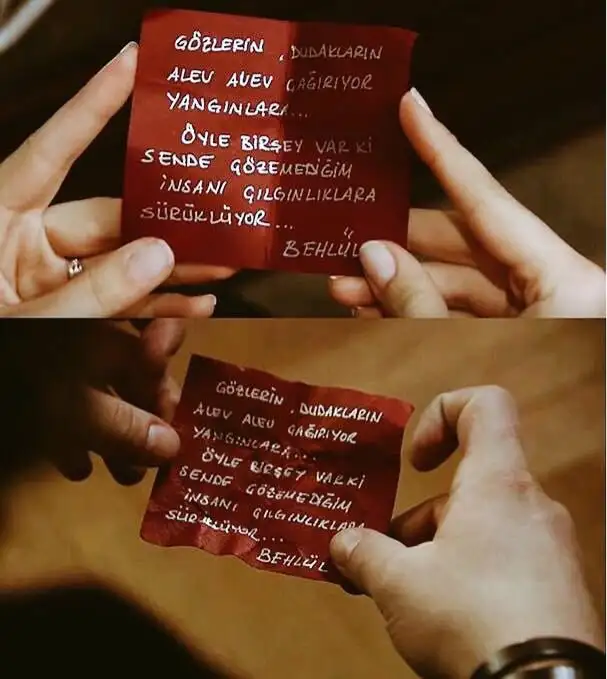 GÖZLERİN, DUDAKLARIN
ALEV ALEV ÇAĞIRIYOR
YANGINLARA...
ÖYLE BİRŞEY VAR Kİ
SENDE ÇÖZEMEDİĞİM
İNSANI ÇILGINLIKLARA
SÜRÜKLÜYOR...
BEHLÜL
GÖZLERİN, DUDAKLARIN
ALEV ALEV ÇAĞIRIYOR
YANGINLARA...
ÖYLE BİRŞEY VAR Kİ
SENDE ÇÖZEMEDİĞİM
İNSANI ÇILGINLIKLARA
SÜRÜKLÜYOR...
BEHLÜL